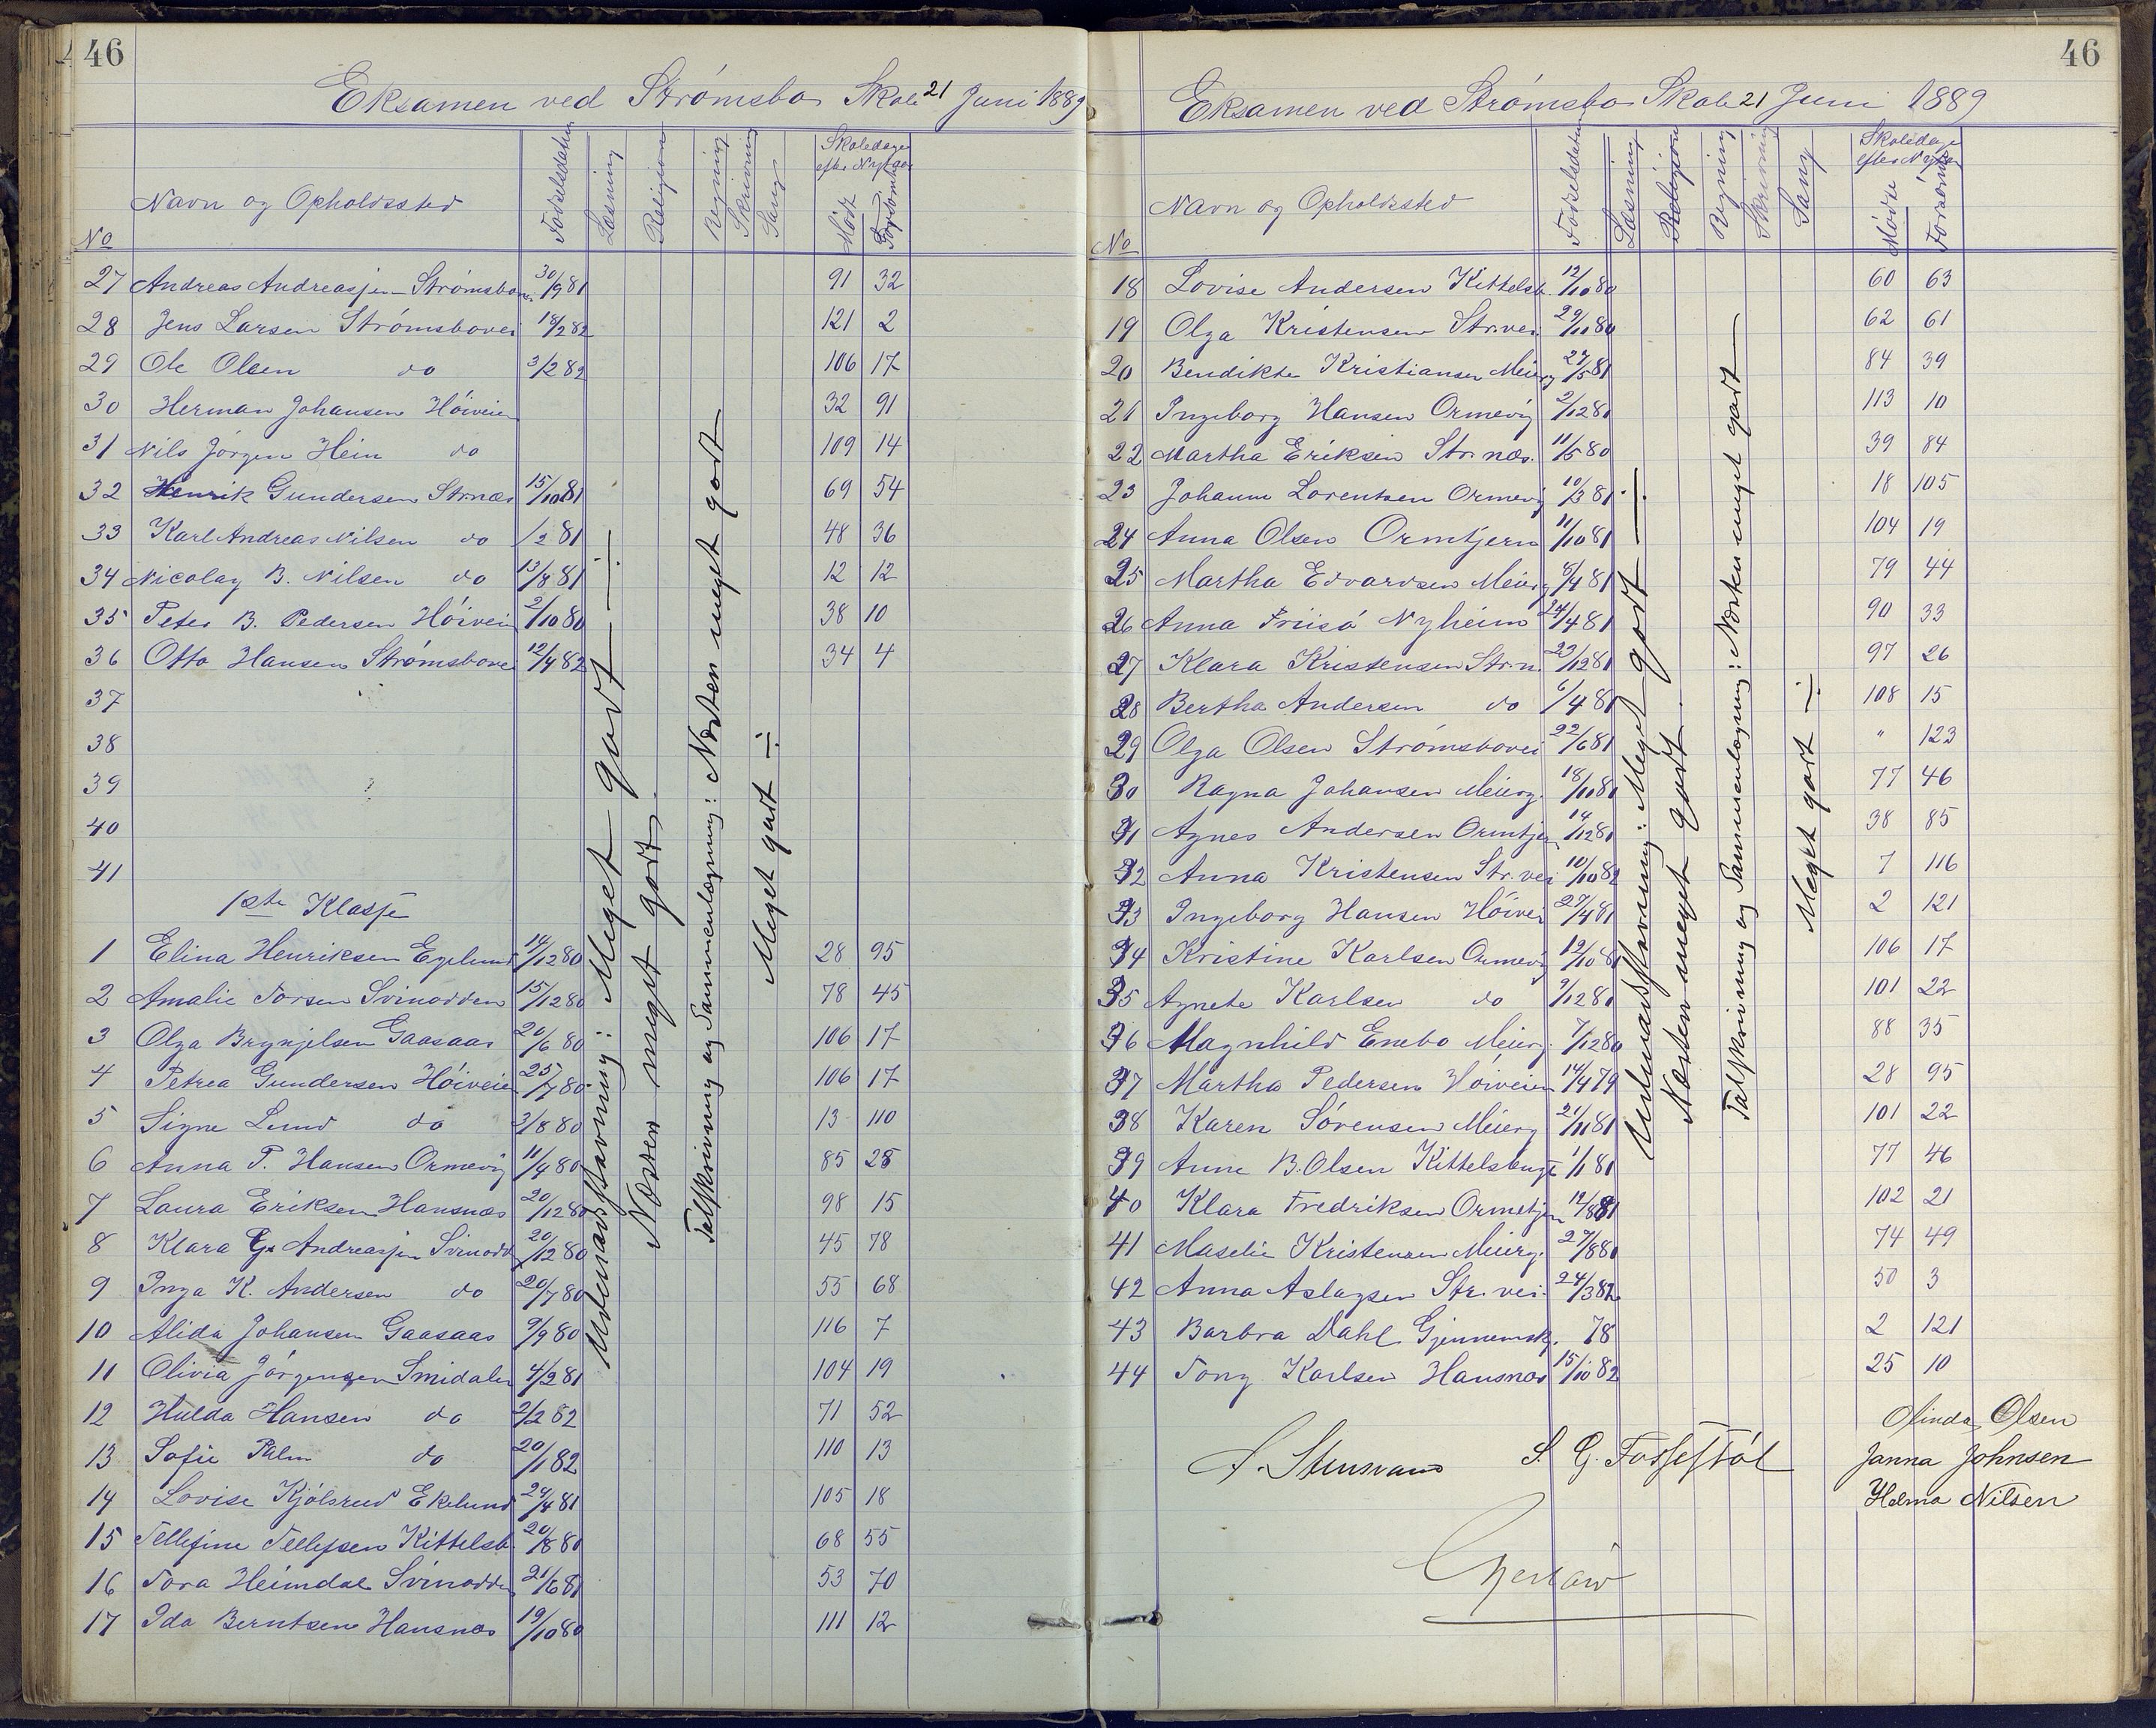 46
Eksamen ved Strømsbo Skole 21 Juni 1889
No Navn og Opholdssted Fødselsdatum Læsning Religion Regning Skrivning Sang Skoledage efter Nytaar Mødt Forsømt
27 Andreas Andreasjen Strømsbovei 30/9 81 91 32
28 Jens Larsen Strømsbovei 18/2 82 121 2
29 Ole Olsen do 3/2 82 106 17
30 Herman Johansen Höiveien 32 91
31 Nils Jörgen Hein do 109 14
32 Henrik Gundersen Strnæs 15/10 81 69 54
33 Karl Andreas Nilsen do /2 81 48 36
34 Nicolay B. Nilsen do 13/8 81 12 12
35 Peter B. Pedersen Höivein 2/10 80 38 10
36 Otto Hansen Strømsbovei 12/4 82 34 4
37
38
39
40
41
1ste Klasse
1 Elina Henriksen Egelund 14/12 80 28 95
2 Amalie Torsen Svinodden 15/12 80 78 45
3 Olga Brynjelsen Gaasaas 20/6 80 106 17
4 Petrea Gundersen Höiveien 25/7 80 106 17
5 Signe Lund do 3/8 80 13 110
6 Anna P. Hansen Ormevig 11/4 80 85 28
7 Laura Eriksen Hansnæs 20/12 80 98 15
8 Klara G. Andreasjen Svinodd 20/12 80 45 78
9 Inga K. Andersen do 20/7 80 55 68
10 Alida Johansen Gaasaas 9/9 80 116 7
11 Olivia Jörgensen Smidalen 4/2 81 104 19
12 Hulda Hansen do 2/2 82 71 52
13 Sofie Palm do 20/1 82 110 13
14 Lovise Kjölsrud Ekelund 24/4 81 105 18
15 Tellefine Tellefsen Kittelsb. 20/8 80 68 55
16 Tora Heimdal Svinodden 21/6 81 53 70
17 Ida Berntsen Hansnæs 19/10 80 111 12
Udenadsstavning: Meget godt ÷
Næsten meget godt.
Talskrivning og Sammenlægning: Næsten meget godt
Meget godt ÷
46
Eksamen ved Strømsbo Skole 21 Juni 1889
No Navn og Opholdssted Fødselsdatum Læsning Religion Regning Skrivning Sang Skoledage efter Nytaar Mødte Forsømte
18 Lovise Andersen Kittelsb. 12/10 80 60 63
19 Olga Kristensen Str.vei 29/11 80 62 61
20 Bendikte Kristiansen Meierg 27/5 81 84 39
21 Ingeborg Hansen Ormevig 2/12 81 113 10
22 Martha Eriksen Str.næs. 11/5 80 39 84
23 Johanne Lorentsen Ormevig 10/3 81 18 105
24 Anna Olsen Ormtjern 11/10 81 104 19
25 Martha Edvardsen Meierg 8/4 81 79 44
26 Anna Friisö Nyheim 24/4 81 90 33
27 Klara Kristensen Str.n. 23/12 81 97 26
28 Bertha Andersen do 6/4 81 108 15
29 Olga Olsen Strømsbovei 22/6 81 " 123
30 Ragna Johansen Meierg. 18/11 80 77 46
31 Agnes Andersen Ormtjern 14/12 81 38 85
32 Anna Kristensen Str.vei 10/10 82 7 116
33 Ingeborg Hansen Höivei 27/4 81 2 121
34 Kristine Karlsen Ormevig 12/10 81 106 17
35 Agnete Karlsen do 9/12 81 101 22
36 Magnhild Enebo Meierg. 7/12 80 88 35
37 Martha Pedersen Höiveien 14/4 79 28 95
38 Karen Sörensen Meierg 21/11 81 101 22
39 Anne B. Olsen Kittelsbugt 1/1 81 77 46
40 Klara Fredriksen Ormtjern 12/8 81 102 21
41 Maselie Kristensen Meierg. 27/8 80 74 49
42 Anna Aslagsen Str. vei. 24/3 82 50 3
43 Barbra Dahl Gjennemsk. 78 2 121
44 Tony Karlsen Hansnæs 15/10 82 25 10
Udenadsstavning: Meget godt ÷
Næsten meget godt.
Talskrivning og Sammenlægning: Næsten meget godt
Meget godt ÷
Olinda Olsen
S. G. Fosselstöl Janna Johnsen
Helma Nilsen